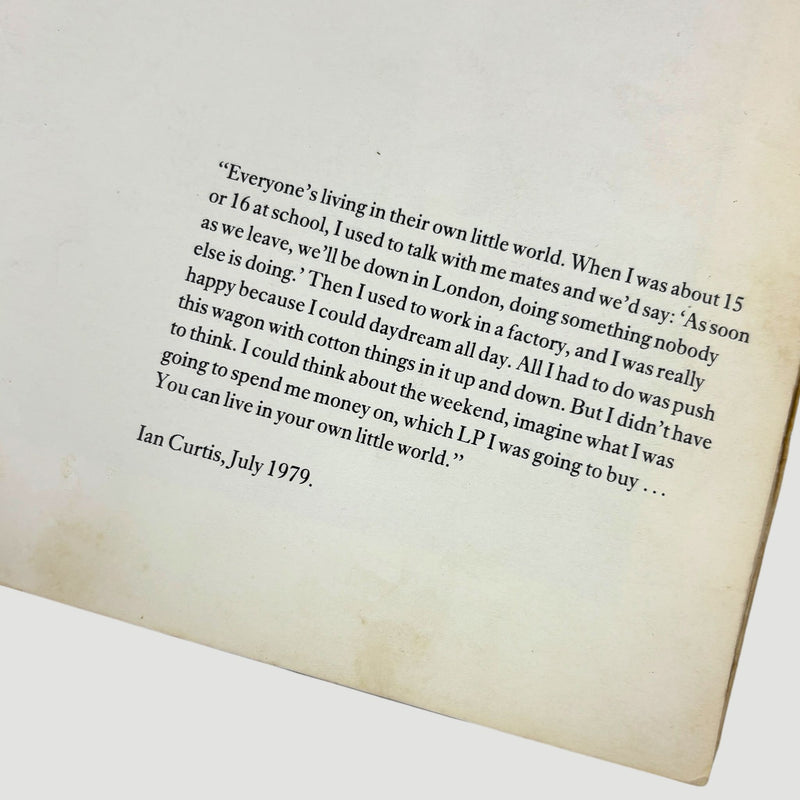 “Everyone’s living in their own little world. When I was about 15
or 16 at school, I used to talk with me mates and we’d say: ‘As soon
as we leave, we’ll be down in London, doing something nobody
else is doing.’ Then I used to work in a factory, and I was really
happy because I could daydream all day. All I had to do was push
this wagon with cotton things in it up and down. But I didn’t have
to think. I could think about the weekend, imagine what I was
going to spend me money on, which LP I was going to buy ...
You can live in your own little world.”
Ian Curtis, July 1979.